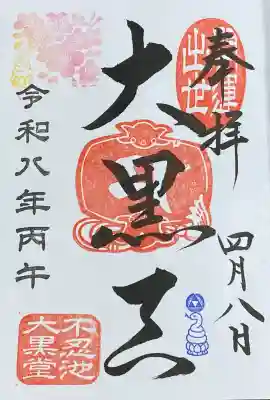 奉拝
四月八日
開運
出世
大黒天
令和八年丙午
不忍池
大黒堂